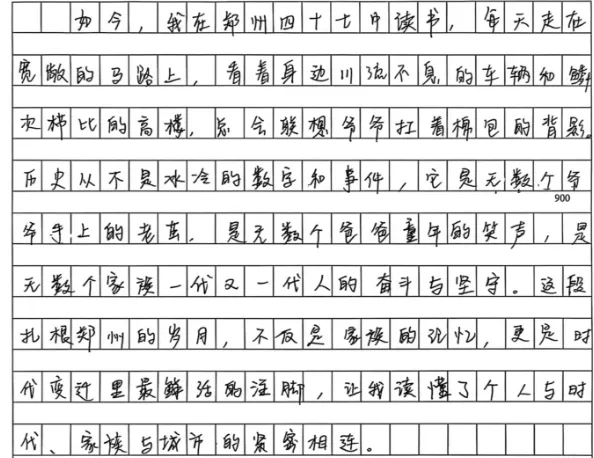 如今，我在郑州四十七中读书，每天走在
宽敞的马路上，看着身边川流不息的车辆和鳞
次栉比的高楼，总会联想爷爷扛着棉包的背影。
历史从不是冰冷的数字和事件，它是无数个爷
900
爷手上的老茧，是无数个爸爸童年的笑声，是
无数个家族一代又一代人的奋斗与坚守。这段
扎根郑州的岁月，不仅是家族的记忆，更是时
代变迁里最鲜活的注脚，让我读懂了个人与时
代、家族与城市的紧密相连。